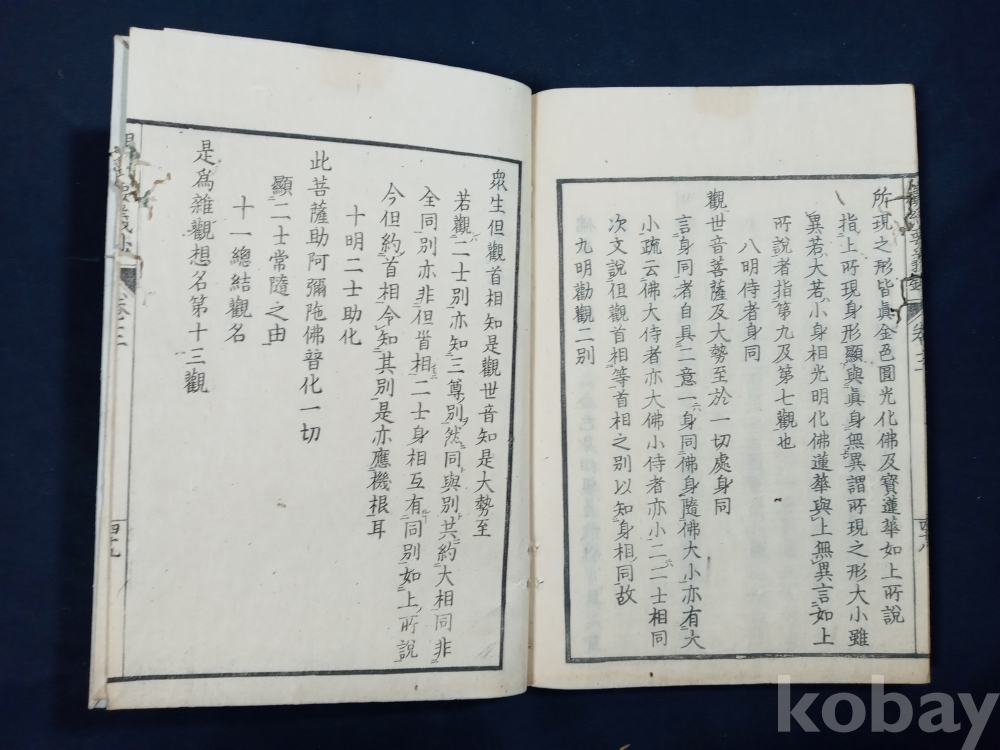 所現之形皆眞金色圓光化佛及寳蓮華如上所說
指上所現身形顯與眞身無異謂所現之形大小雖
異若大若小身相光明化佛蓮華與上無異言如上
所說者指第九及第七觀也
八明侍者身同
觀世音菩薩及大勢至於一切處身同
言身同者自具二意一身同佛身隨佛大小亦有大
小疏云佛大侍者亦大佛小侍者亦小二二士相同
次文說但觀首相等首相之別以知身相同故
九明勸觀二別
卷十二
四十八
衆生但觀首相知是觀世音知是大勢至
若觀二士別亦知三尊別然同與別共約大相同非
全同別亦非但首相二士身相互有同別如上所說
今但約首相令知其別是亦應機根耳
十明二士助化
此菩薩助阿彌陁佛普化一切
顯二士常隨之由
十一總結觀名
是爲雜觀想名第十三觀
四十九
kobay